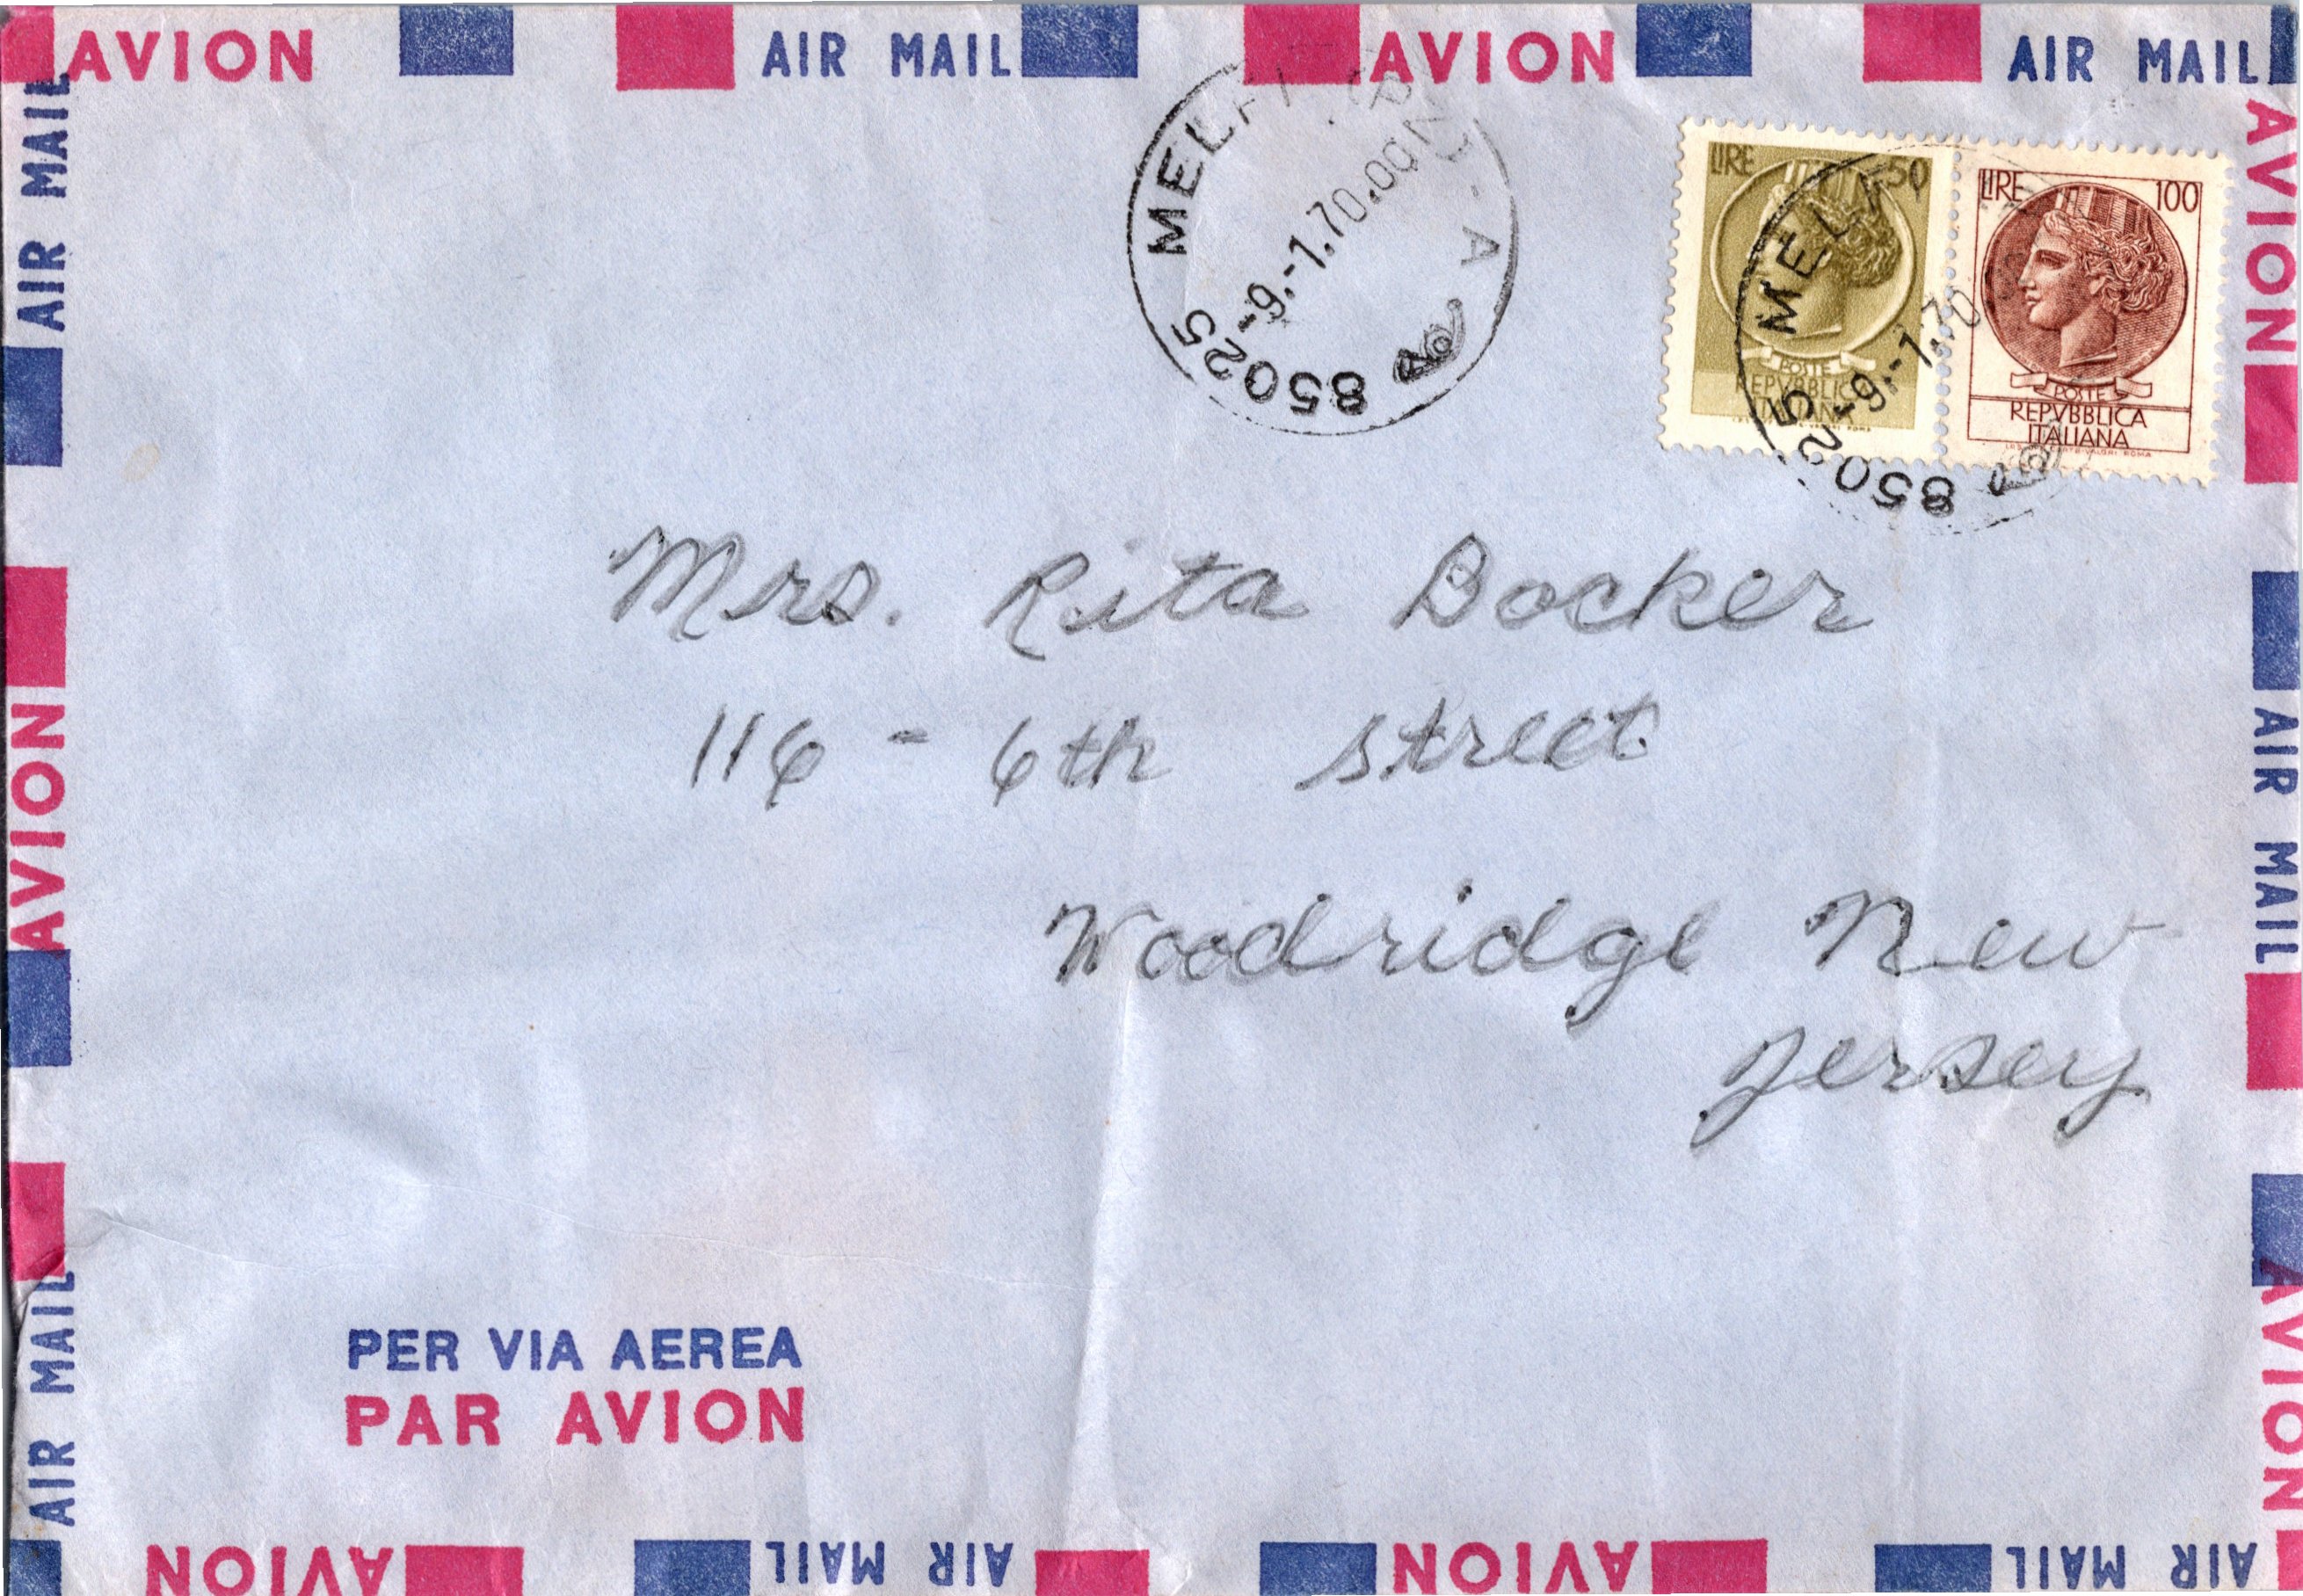 AVION AIR MAIL AVION AIR MAIL
AIR MAIL
AVION
AIR MAIL
AVION
AIR MAIL
AVION
85025 MELFI
-9.-1.70.00
LIRE 50
POSTE
REPVBBLICA
ITALIANA
LIRE 100
POSTE
REPVBBLICA
ITALIANA
85025 MELFI
-9.-1.70
Mrs. Rita Bocker
116 - 6th street
Woodridge New
Jersey
PER VIA AEREA
PAR AVION
AVION AIR MAIL AVION AIR MAIL